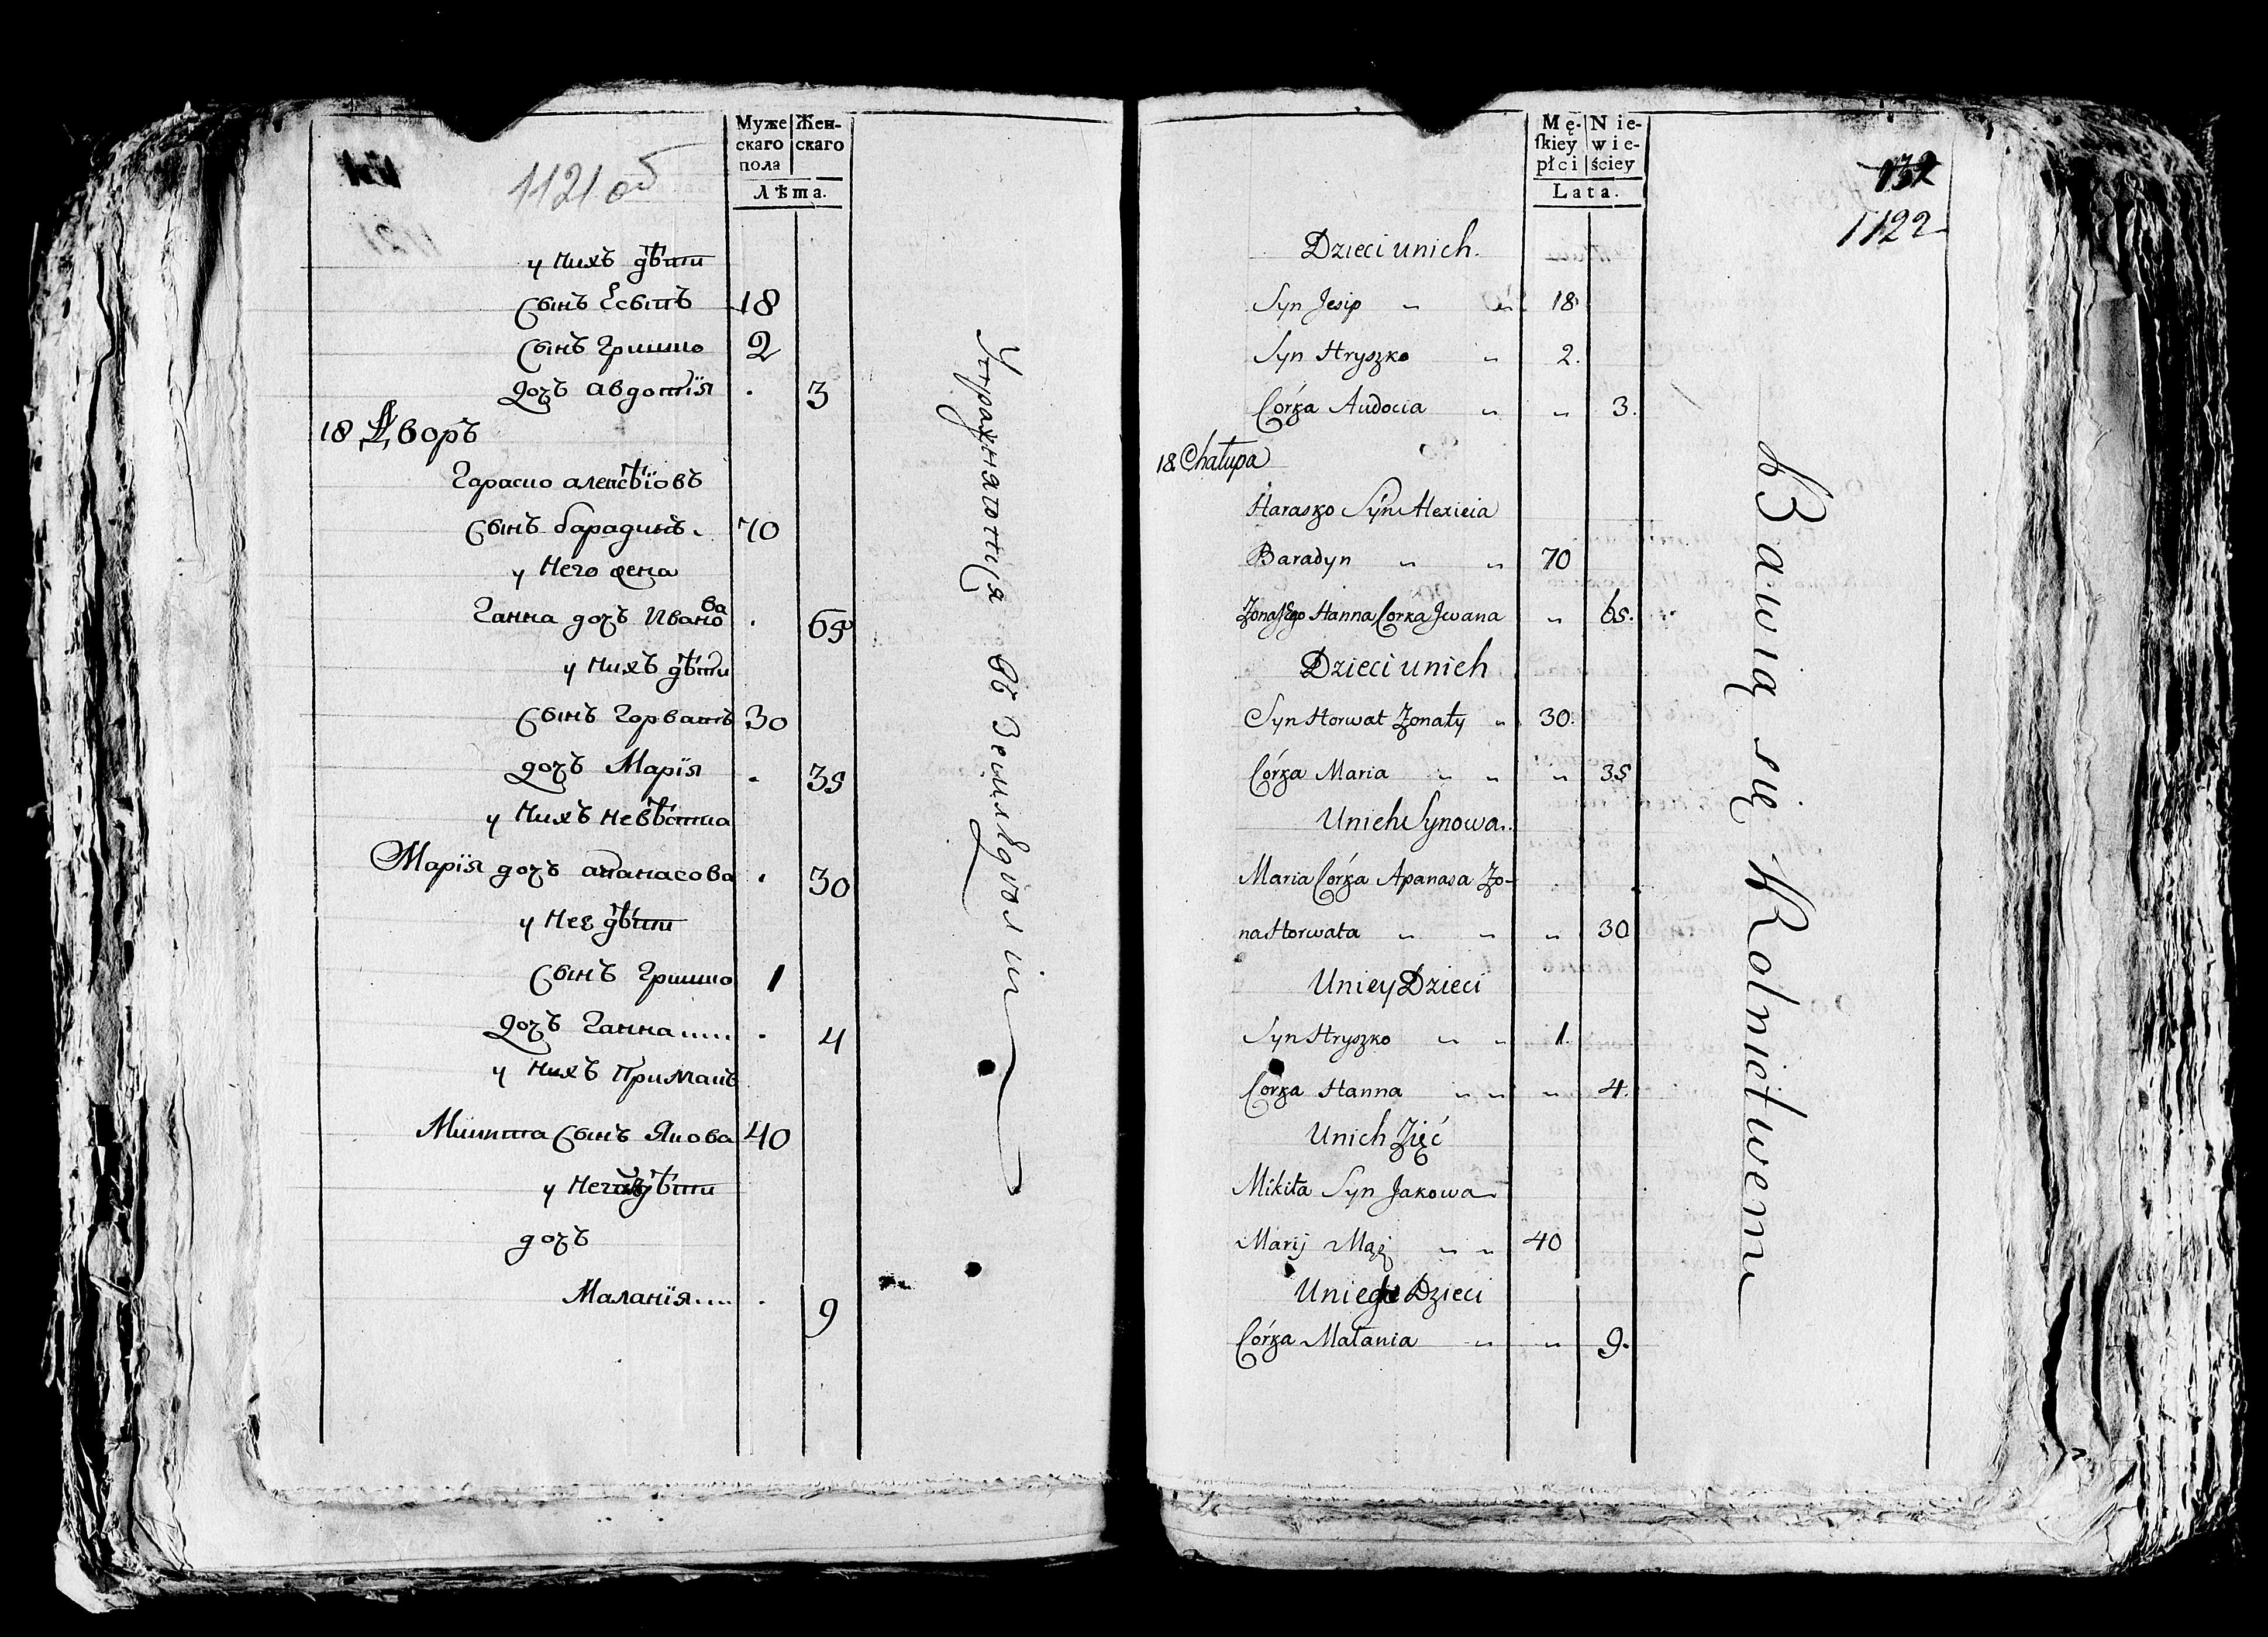 1121 об
Муже
скаго
пола
Жен-
скаго
Лѣта.
у нихъ дѣти
сынъ Есыпъ 18
сынъ Гришко 2
дочъ Авдотія . 3
18 Дворъ
Гараско алексѣіовъ
сынъ барадинъ. 70
у Него жена
Ганна дочъ Иванова . 65
у нихъ дѣти
сынъ Горватъ 30
дочъ Марія . 35
у нихъ невѣстка
Марія дочъ апанасова . 30
у Нее дѣти
сынъ Гришко 1
дочъ Ганна..... . 4
у нихъ Примакъ
Микита сынъ Якова 40
у Него дѣти
дочъ
Маланія.... . 9
Упражняются въ Земледѣліи
132
1122
Mę-
skiey
płci
Nie-
wie-
ściey
Lata.
Dzieci unich.
Syn Jesip „ „ 18
Syn Hryszko „ 2.
Córka Audocia „ „ 3.
18 Chałupa
Harasko Syn Alexieia
Baradyn „ „ 70
Zona Jego Hanna Corka Jwana „ 65.
Dzieci unich
Syn Horwat Zonaty „ 30.
Córka Maria „ „ „ 35
Unich Synowa.
Maria Córka Apanasa Zo-
na Horwata „ „ „ 30
Uniey Dzieci
Syn Hryszko „ „ 1.
Corka Hanna „ „ „ 4.
Unich Zięć
Mikita Syn Jakowa
Marij Mąż „ „ 40
Uniego Dzieci
Córka Małania „ „ 9.
Bawią się Rolnictwem